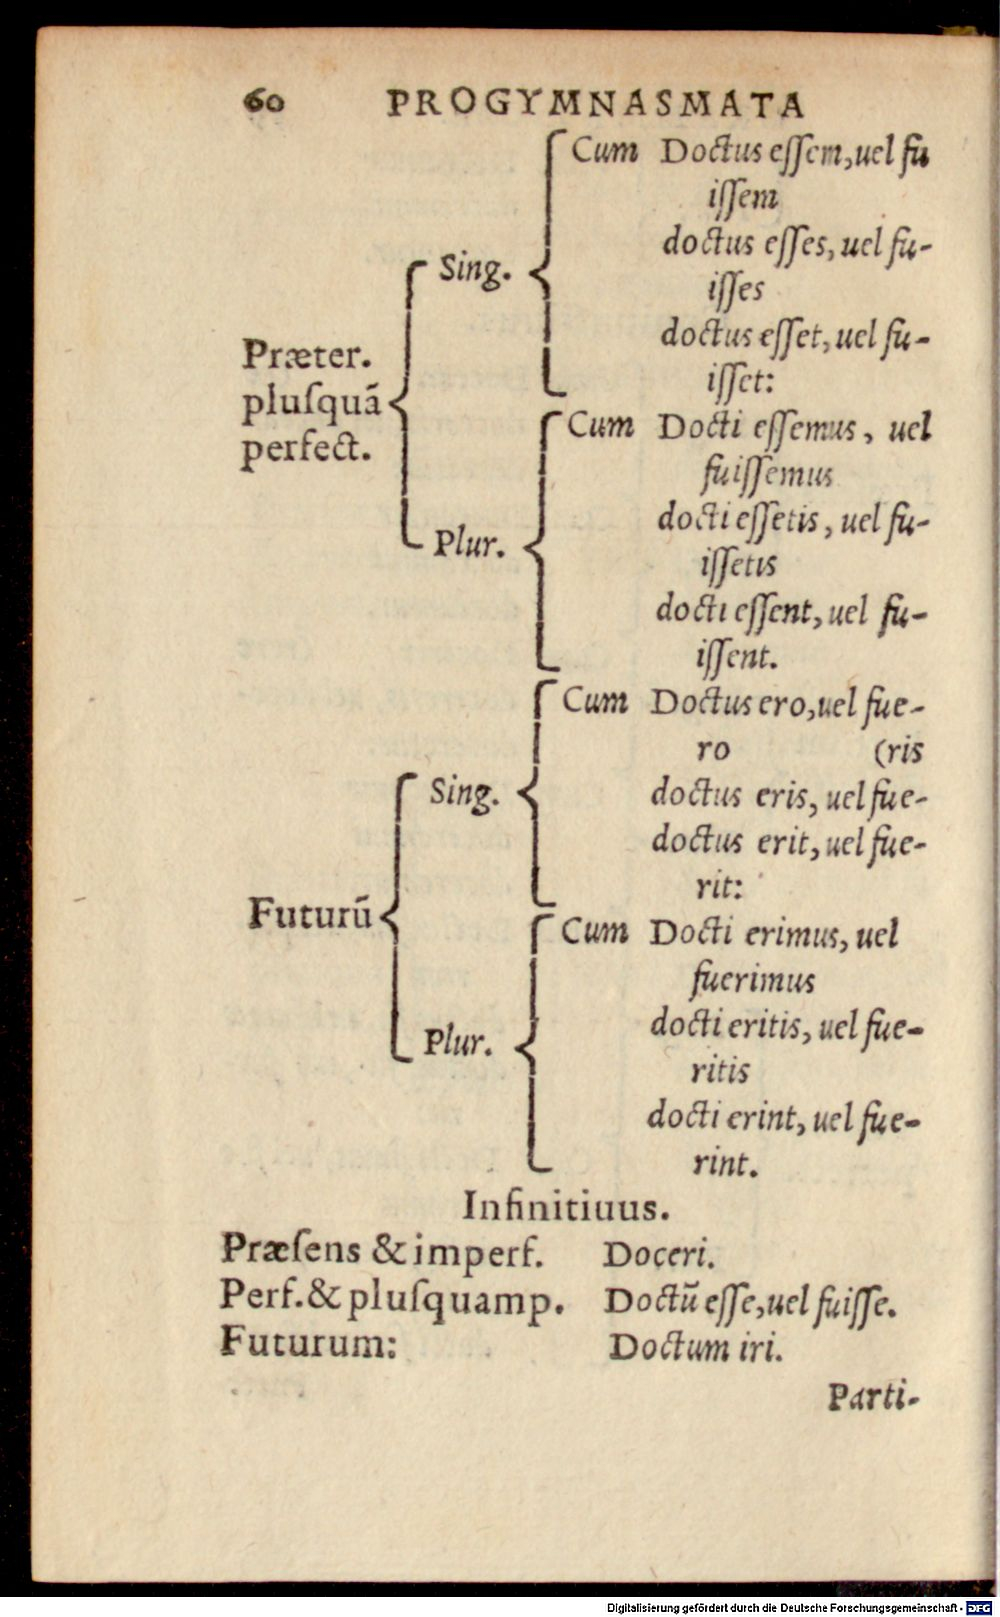 60 PROGYMNASMATA
Cum Doctus eſſem, uel fu
iſſem
doctus eſſes, uel fu-
Sing.
iſſes
doctus eſſet, uel fu-
Præter.
iſſet:
pluſquã
Cum Docti eſſemus, uel
perfect.
fuiſſemus
docti eſſetis, uel fu-
Plur.
iſſetis
docti eſſent, uel fu-
iſſent.
Cum Doctus ero, uel fue-
ro (ris
Sing. doctus eris, uel fue-
doctus erit, uel fue-
rit:
Futurũ
Cum Docti erimus, uel
fuerimus
docti eritis, uel fue-
Plur.
ritis
docti erint, uel fue-
rint.
Infinitiuus.
Præſens & imperf. Doceri.
Perf. & pluſquamp. Doctũ eſſe, uel fuiſſe.
Futurum: Doctum iri.
Parti-
Digitalisierung gefördert durch die Deutsche Forschungsgemeinschaft - DFG